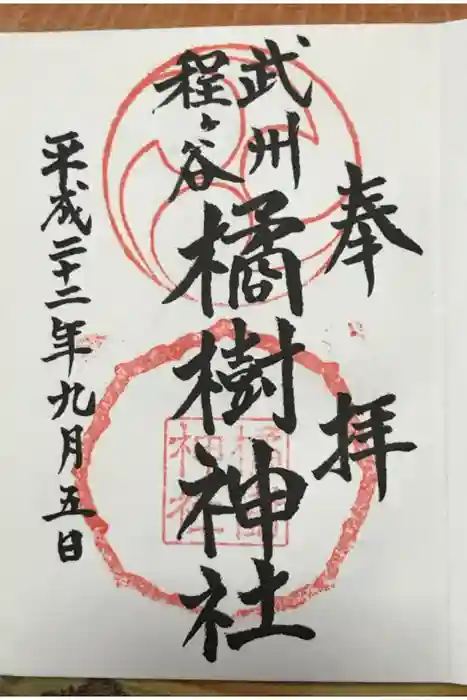 奉拝
武州
程ヶ谷
橘樹神社
橘樹
神社
平成二十二年九月五日